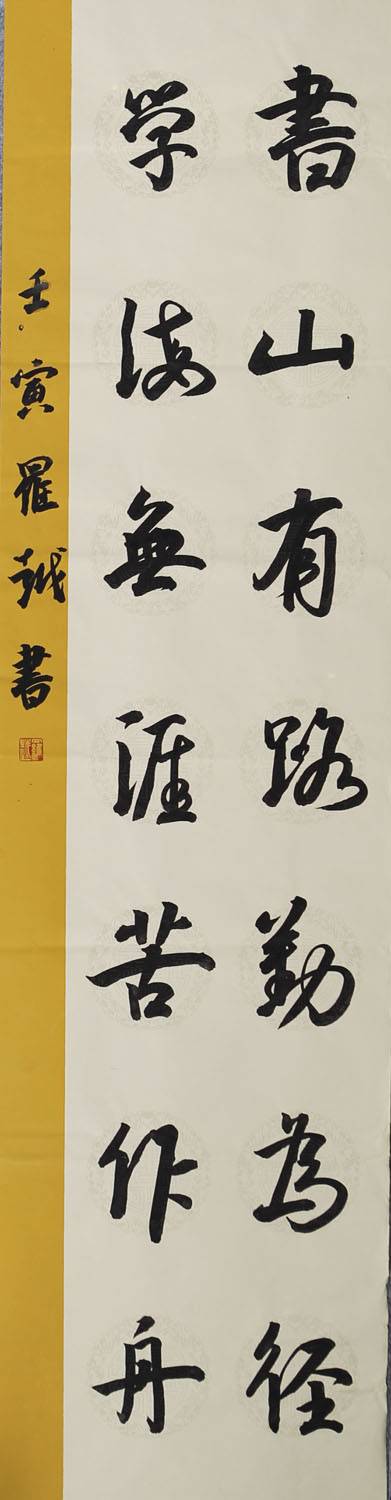 書山有路勤為徑
学海無涯苦作舟
壬寅羅越書